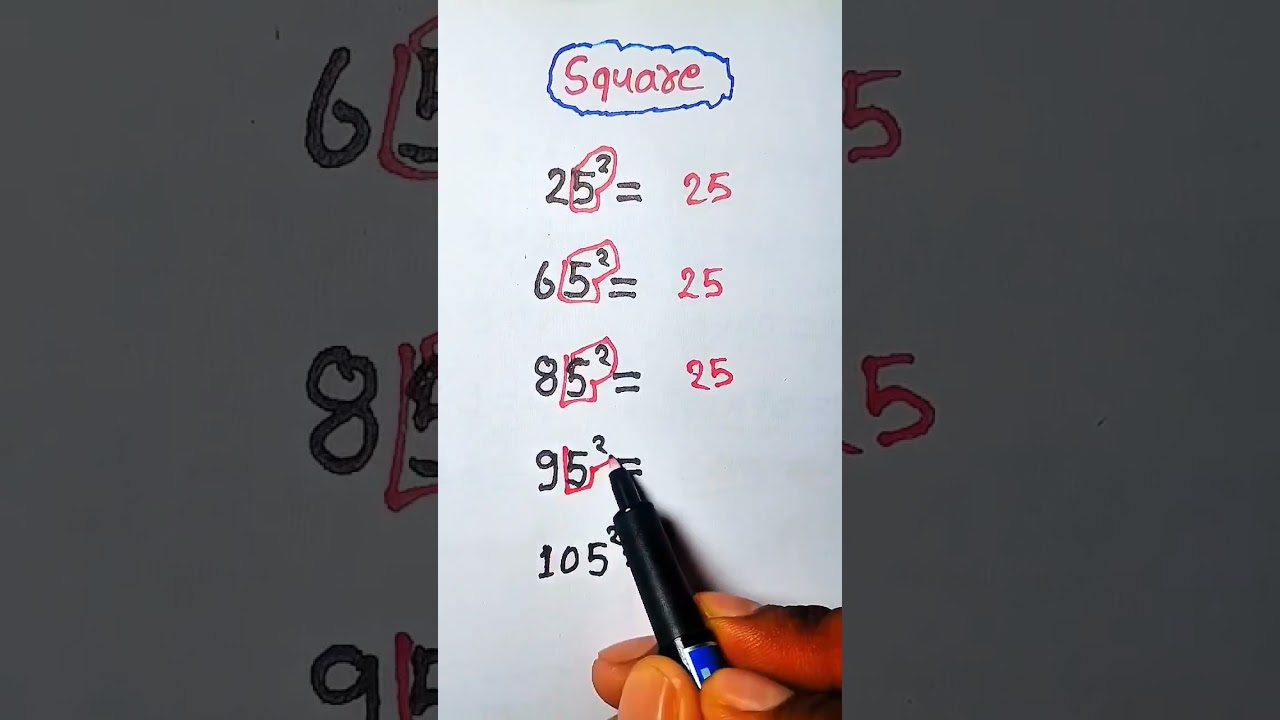 Square
25² = 25
65² = 25
85² = 25
95² =
105²